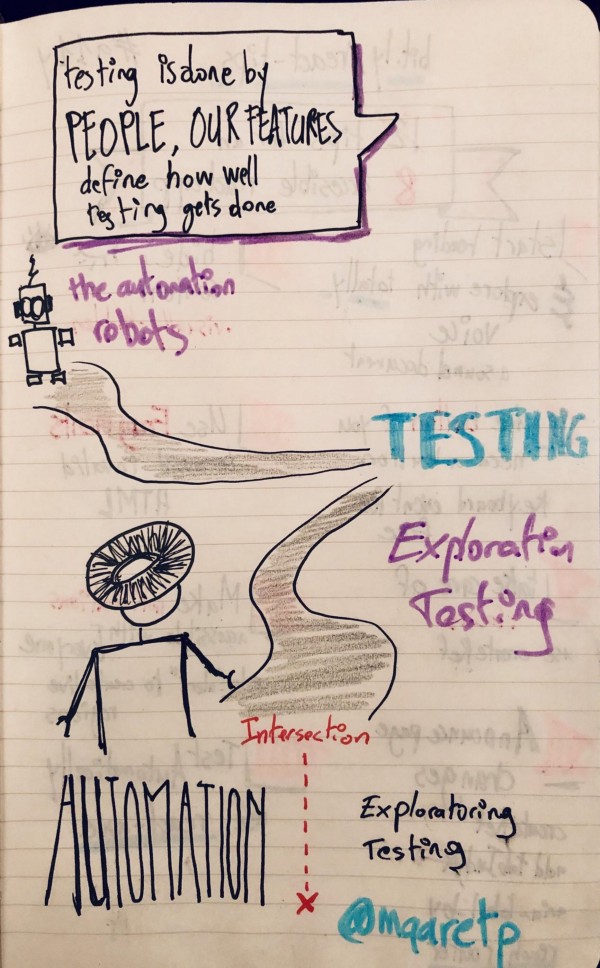 testing is done by
PEOPLE, OUR FEATURES
define how well
testing gets done
the automation
robots
TESTING
Exploration
Testing
Intersection
AUTOMATION
Exploratoring
Testing
@mqaretp